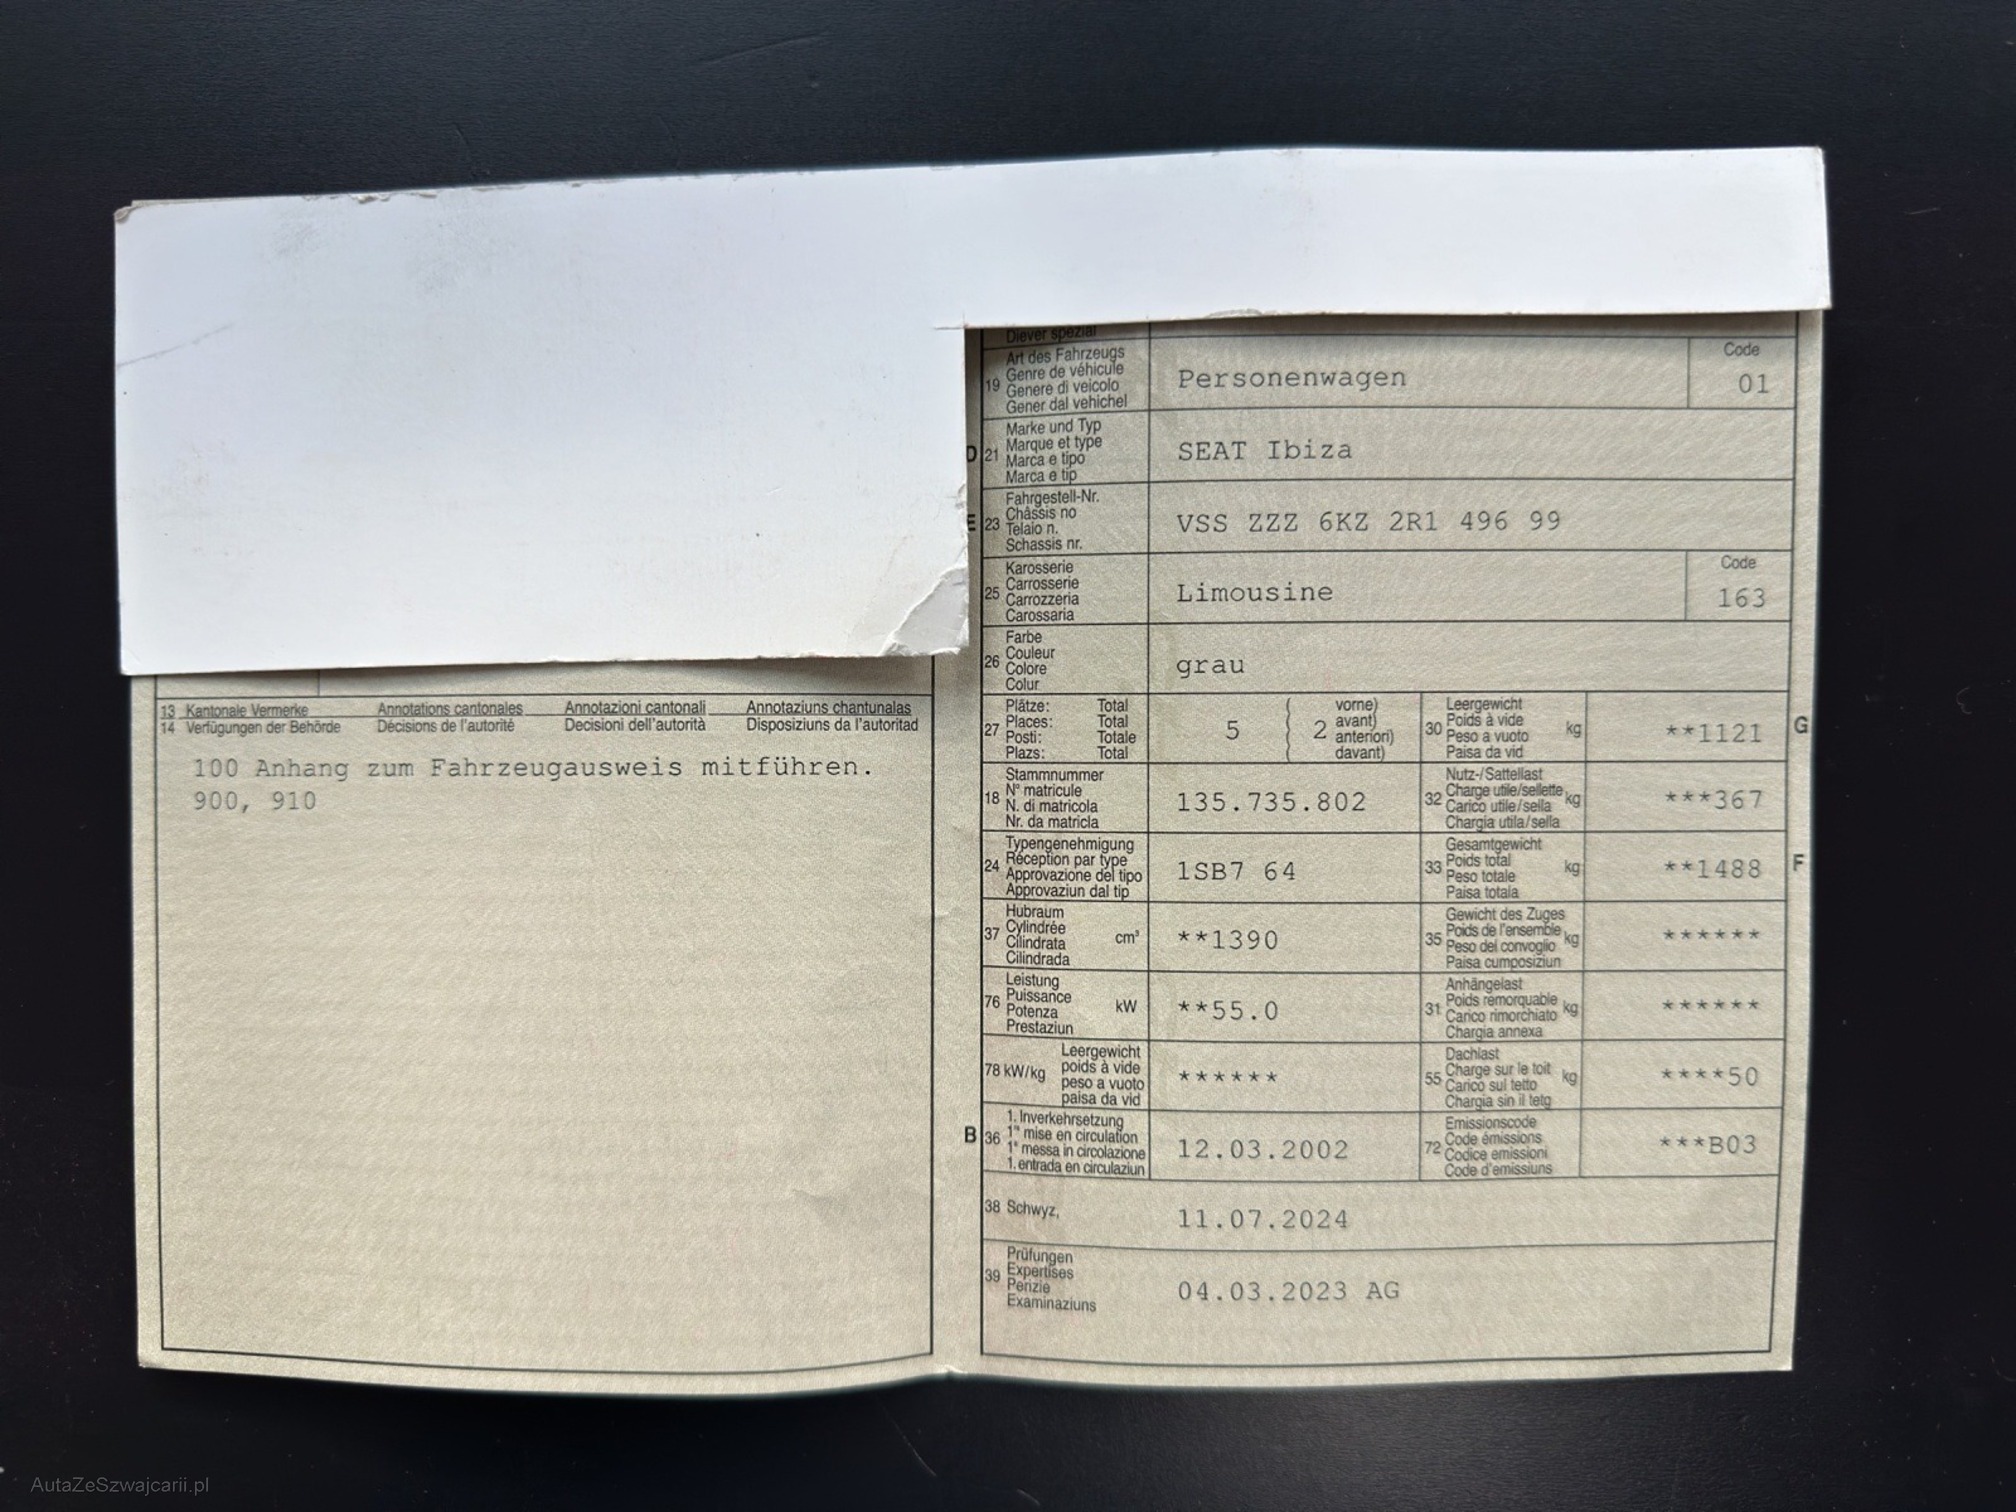 13 Kantonale Vermerke Annotations cantonales Annotazioni cantonali Annotaziuns chantunalas
14 Verfügungen der Behörde Décisions de l'autorité Decisioni dell'autorità Disposiziuns da l'autoritad
100 Anhang zum Fahrzeugausweis mitführen.
900, 910
Diever spezial
19 Art des Fahrzeugs
Genre de véhicule
Genere di veicolo
Gener dal vehichel
Personenwagen
Code
01
D 21 Marke und Typ
Marque et type
Marca e tipo
Marca e tip
SEAT Ibiza
E 23 Fahrgestell-Nr.
Châssis no
Telaio n.
Schassis nr.
VSS ZZZ 6KZ 2R1 496 99
25 Karosserie
Carrosserie
Carrozzeria
Carossaria
Limousine
Code
163
26 Farbe
Couleur
Colore
Colur
grau
27 Plätze: Total
Places: Total
Posti: Totale
Plazs: Total
5 ( 2 vorne)
avant)
anteriori)
davant)
30 Leergewicht
Poids à vide
Peso a vuoto
Paisa da vid
kg
**1121 G
18 Stammnummer
N° matricule
N. di matricola
Nr. da matricla
135.735.802
32 Nutz-/Sattellast
Charge utile/sellette
Carico utile/sella
Chargia utila/sella
kg
***367
24 Typengenehmigung
Réception par type
Approvazione del tipo
Approvaziun dal tip
1SB7 64
33 Gesamtgewicht
Poids total
Peso totale
Paisa totala
kg
**1488 F
37 Hubraum
Cylindrée
Cilindrata
Cilindrada
cm³
**1390
35 Gewicht des Zuges
Poids de l'ensemble
Peso del convoglio
Paisa cumposiziun
kg
******
76 Leistung
Puissance
Potenza
Prestaziun
kW
**55.0
31 Anhängelast
Poids remorquable
Carico rimorchiato
Chargia annexa
kg
******
78 kW/kg Leergewicht
poids à vide
peso a vuoto
paisa da vid
******
55 Dachlast
Charge sur le toit
Carico sul tetto
Chargia sin il tetg
kg
****50
B 36 1. Inverkehrsetzung
1re mise en circulation
1a messa in circolazione
1. entrada en circulaziun
12.03.2002
72 Emissionscode
Code émissions
Codice emissioni
Code d'emissiuns
***B03
38 Schwyz,
11.07.2024
39 Prüfungen
Expertises
Perizie
Examinaziuns
04.03.2023 AG
AutaZeSzwajcarii.pl